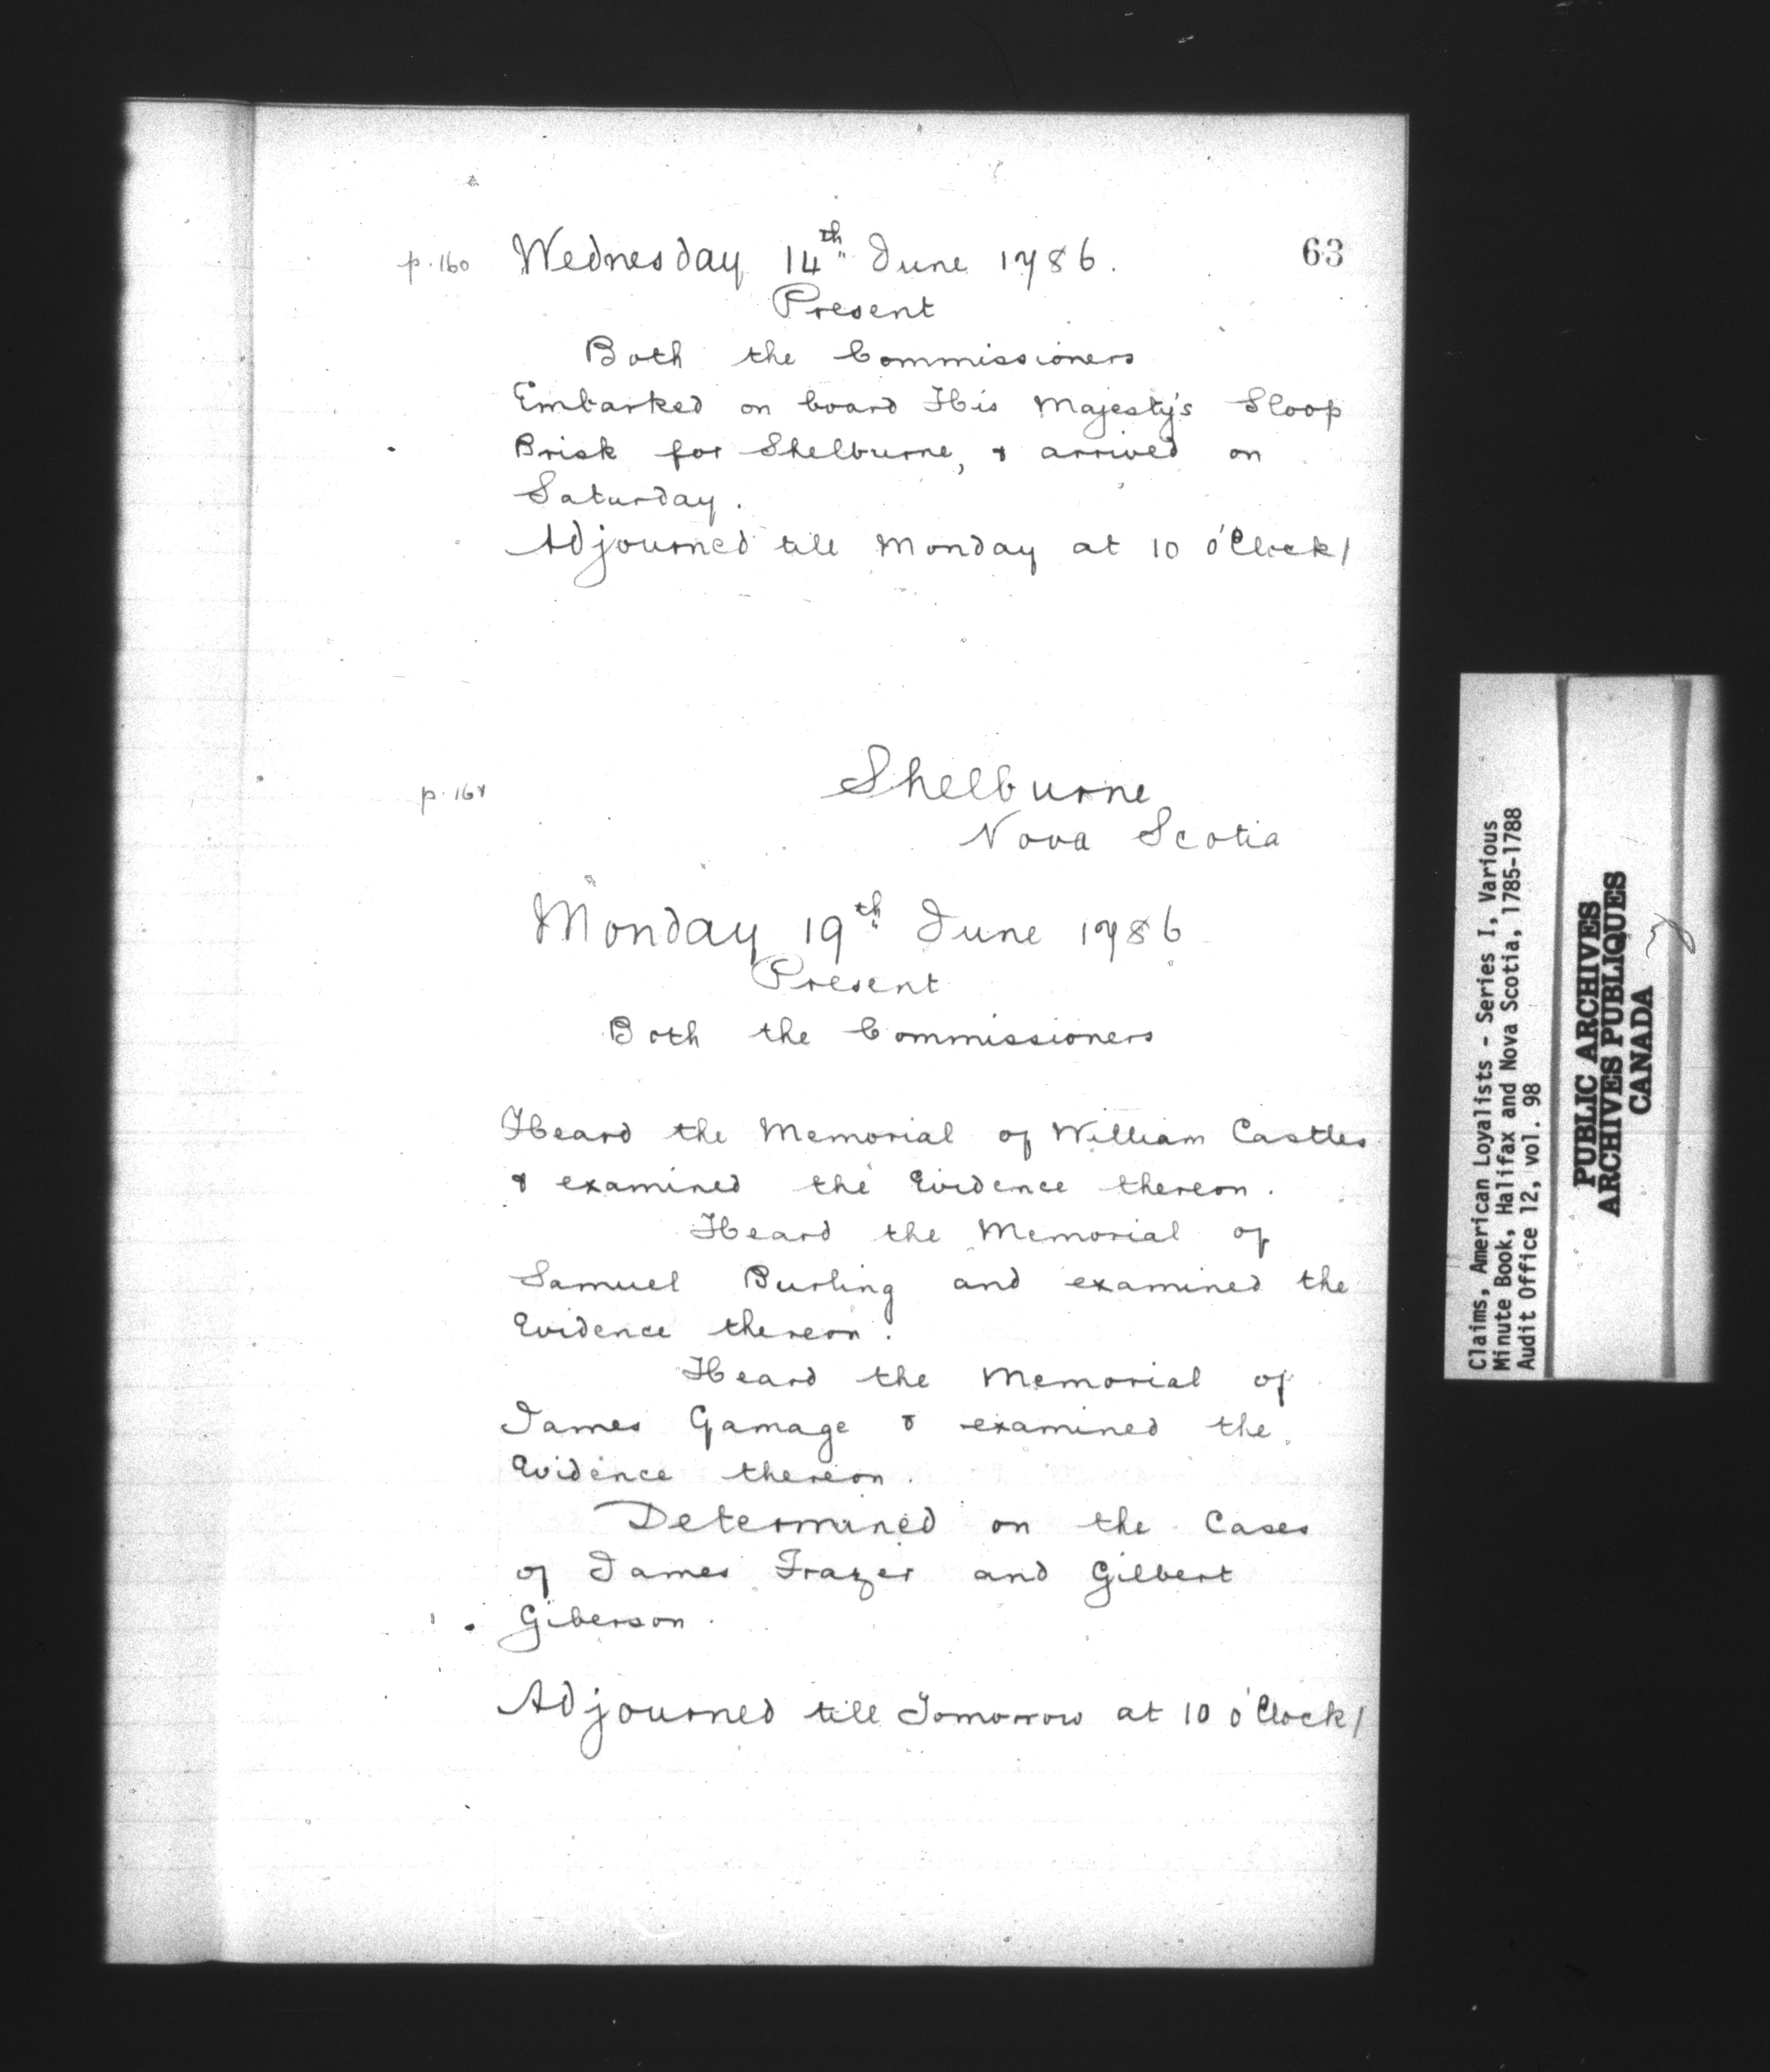 63
p. 160 Wednesday 14th June 1786.
Present
Both the Commissioners
Embarked on board His Majesty's Sloop
Brisk for Shelburne, & arrived on
Saturday.
Adjourned till Monday at 10 o'Clock/
Shelburne
Nova Scotia
Monday 19th June 1786
Present
Both the Commissioners
Heard the Memorial of William Castles
& examined the Evidence thereon.
Heard the Memorial of
Samuel Burling and examined the
Evidence thereon.
Heard the Memorial of
James Gamage & examined the
Evidence thereon.
Determined on the Cases
of James Frazer and Gilbert
Giberson.
Adjourned till Tomorrow at 10 o'Clock/
Claims, American Loyalists - Series I, Various
Minute Book, Halifax and Nova Scotia, 1785-1788
Audit Office 12, vol. 98
PUBLIC ARCHIVES
ARCHIVES PUBLIQUES
CANADA